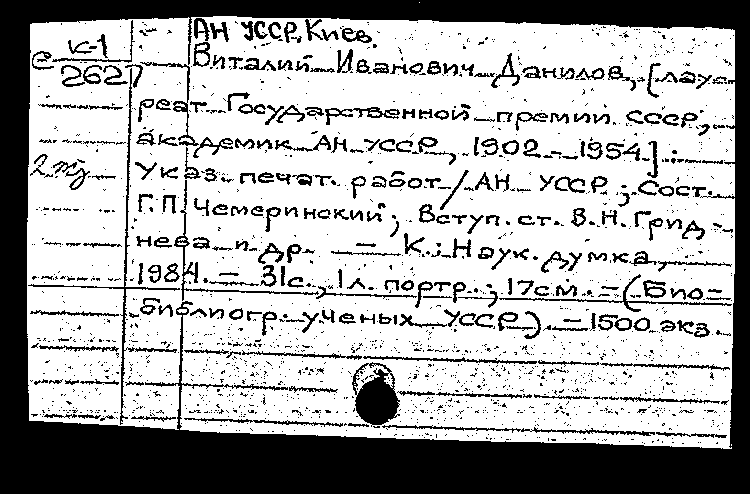 АН УССР, Киев.
е К-1
2627
Виталий Иванович Данилов, [лау-
реат Государственной премии СССР,
академик АН УССР, 1902 - 1954]:
2
Указ. печат. работ / АН УССР ; Сост.
Г.П. Чемеринский ; Вступ. ст. В.Н. Грид-
нева и др. - К.: Наук. думка,
1984. - 31с., 1л. портр. ; 17см. - (Био-
библиогр. ученых УССР). - 1500 экз.